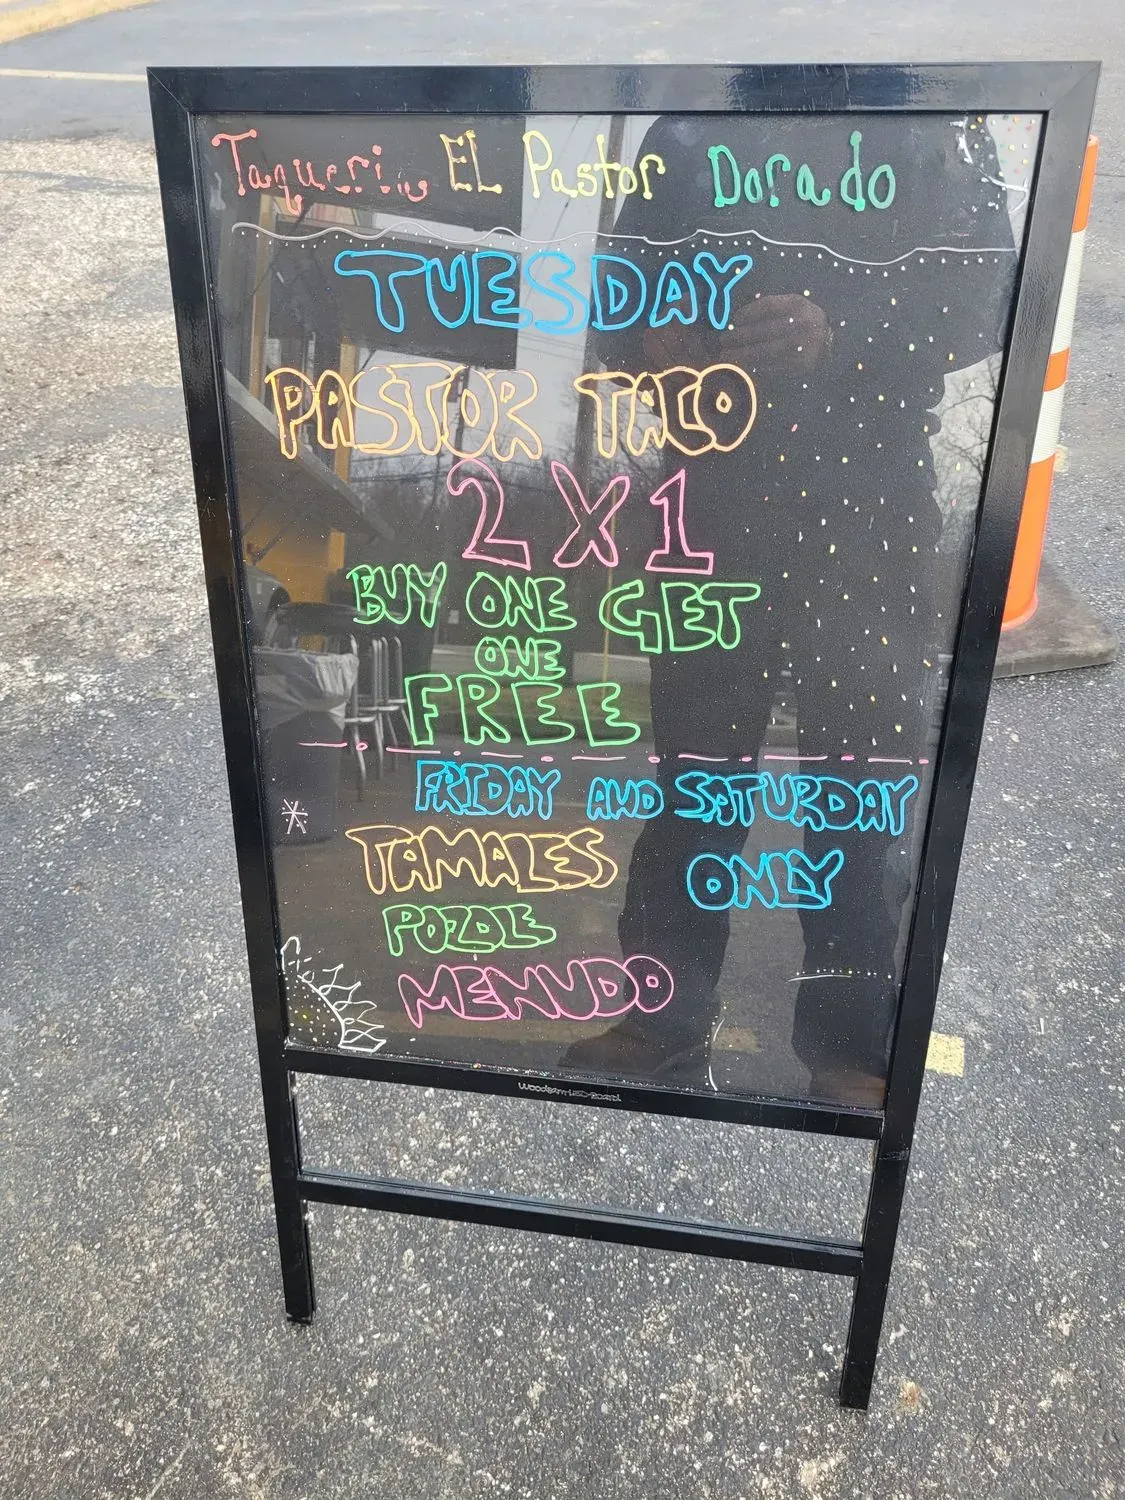 Taqueria EL Pastor Dorado
TUESDAY
PASTOR TACO
2 X 1
BUY ONE GET
ONE
FREE
FRIDAY AND SATURDAY
TAMALES ONLY
POZOLE
MENUDO